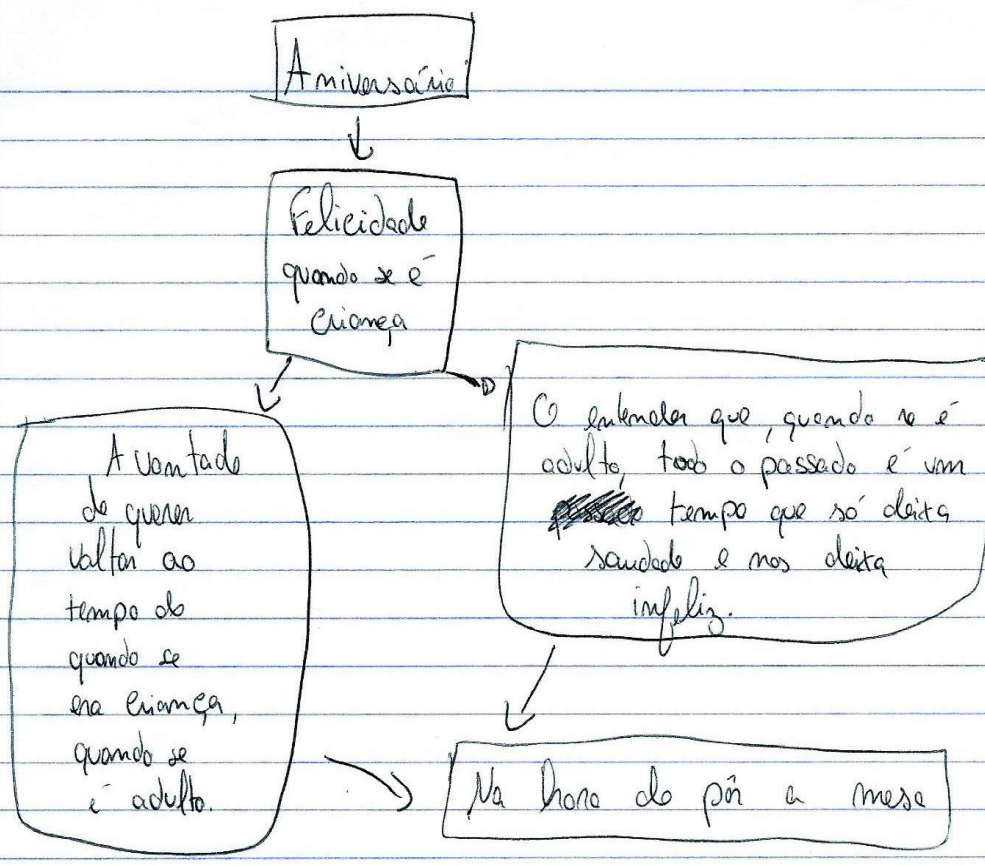 Aniversário
Felicidade
quando se é
criança
A vontade
de querer
voltar ao
tempo de
quando se
era criança,
quando se
é adulto.
O entender que, quando se é
adulto, todo o passado é um
tempo que só deixa
saudade e nos deixa
infeliz.
Na hora de pôr a mesa